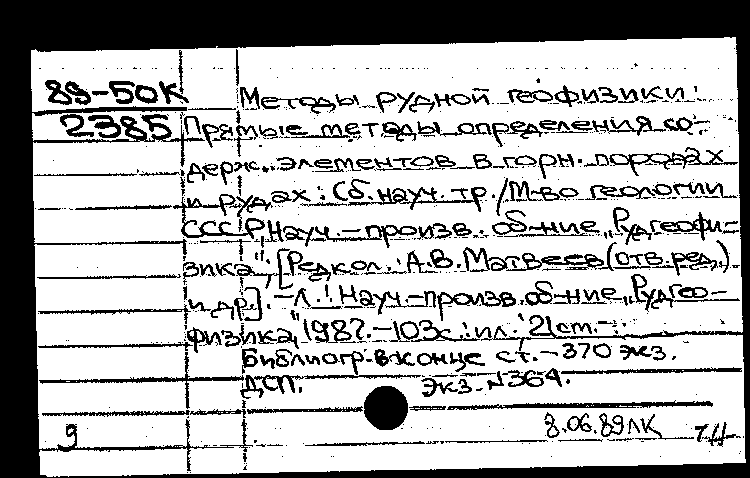 89-50К
2385
Методы рудной геофизики:
Прямые методы определения со-
держ. элементов в горн. породах
и рудах: Сб. науч. тр./М-во геологии
СССР, Науч.-произв. об-ние „Рудгеофи-
зика", [Редкол.: А.В. Матвеев (отв. ред.)
и др.]. -Л.: Науч.-произв. об-ние „Рудгео-
физика", 1987. -103с.: ил.; 21см.-
Библиогр. в конце ст. -370 экз.
ДСП. Экз. N364.
9 8.06.89ЛК